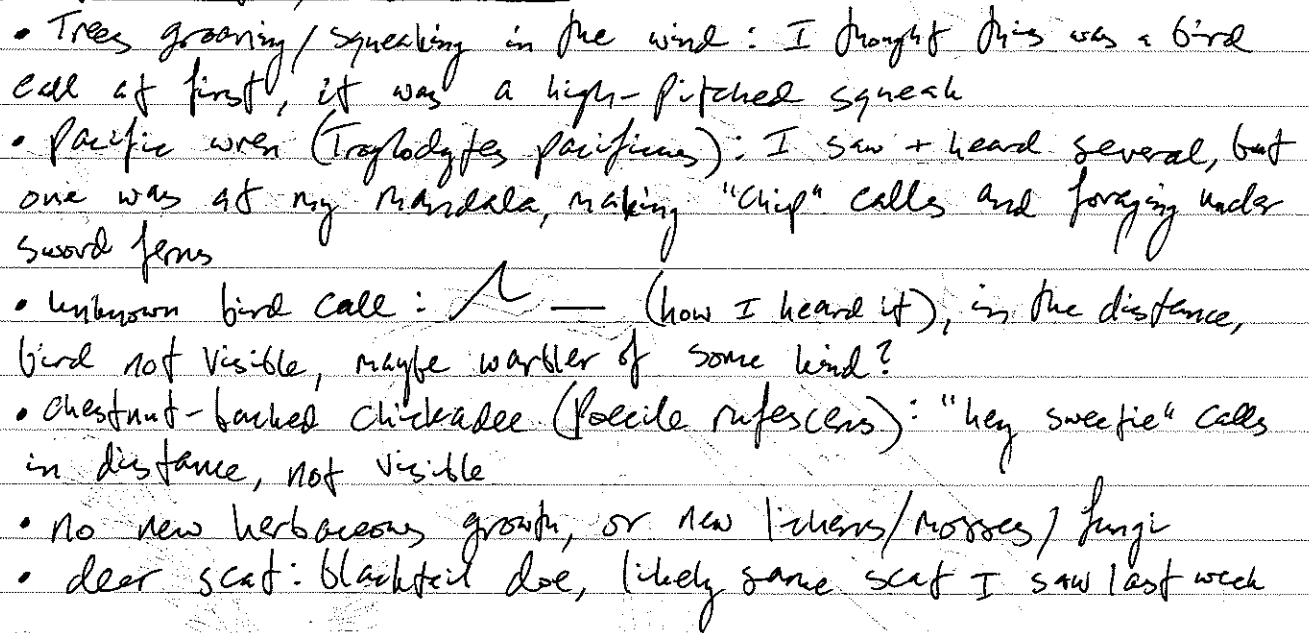 • Trees groaning/squeaking in the wind: I thought this was a bird
call at first, it was a high-pitched squeak
• Pacific wren (Troglodytes pacificus): I saw + heard several, but
one was at my mandala, making "chip" calls and foraging under
sword ferns
• unknown bird call: — (how I heard it), in the distance,
bird not visible, maybe warbler of some kind?
• Chestnut-backed chickadee (Poecile rufescens): "hey sweetie" calls
in distance, not visible
• no new herbaceous growth, or new lichens/mosses/fungi
• deer scat: blacktail doe, likely same scat I saw last week